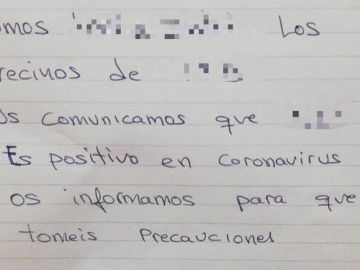 omos Los
vecinos de
os comunicamos que
Es positivo en coronavirus
os informamos para que
tomeis Precauciones